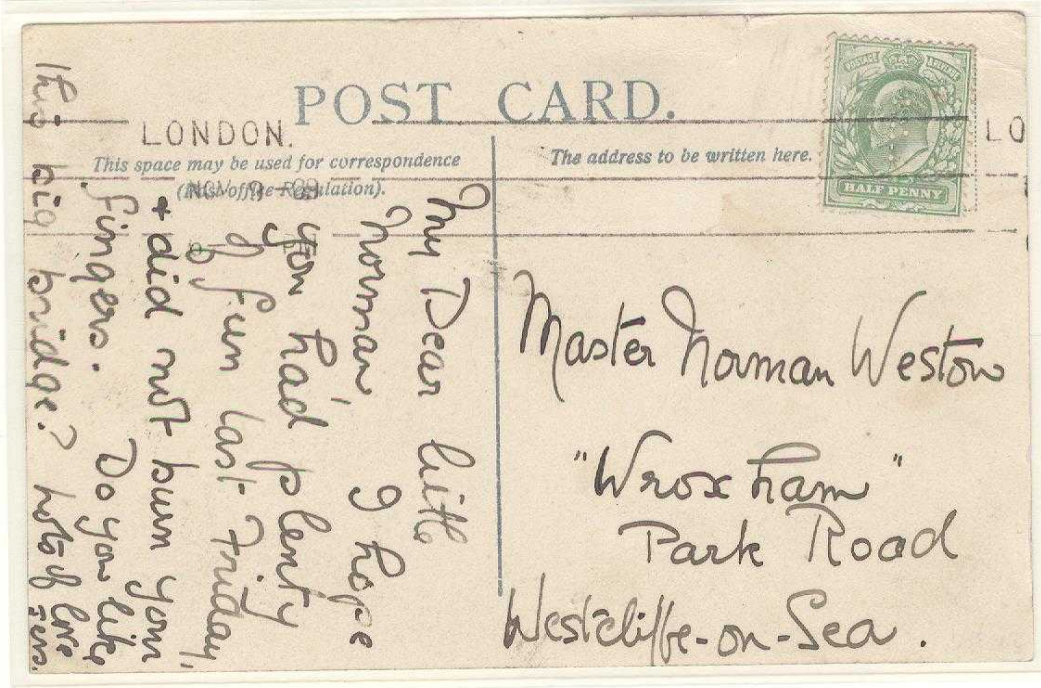 POST CARD.
LONDON.
This space may be used for correspondence
The address to be written here.
POSTAGE
HALF PENNY
LO
My Dear little
Norman, I hope
you had plenty
of fun last Friday,
+ did not burn your
fingers. Do you like
this big bridge? lots of love
Master Norman Weston
"Wroxham"
Park Road
Westcliffe-on-Sea.